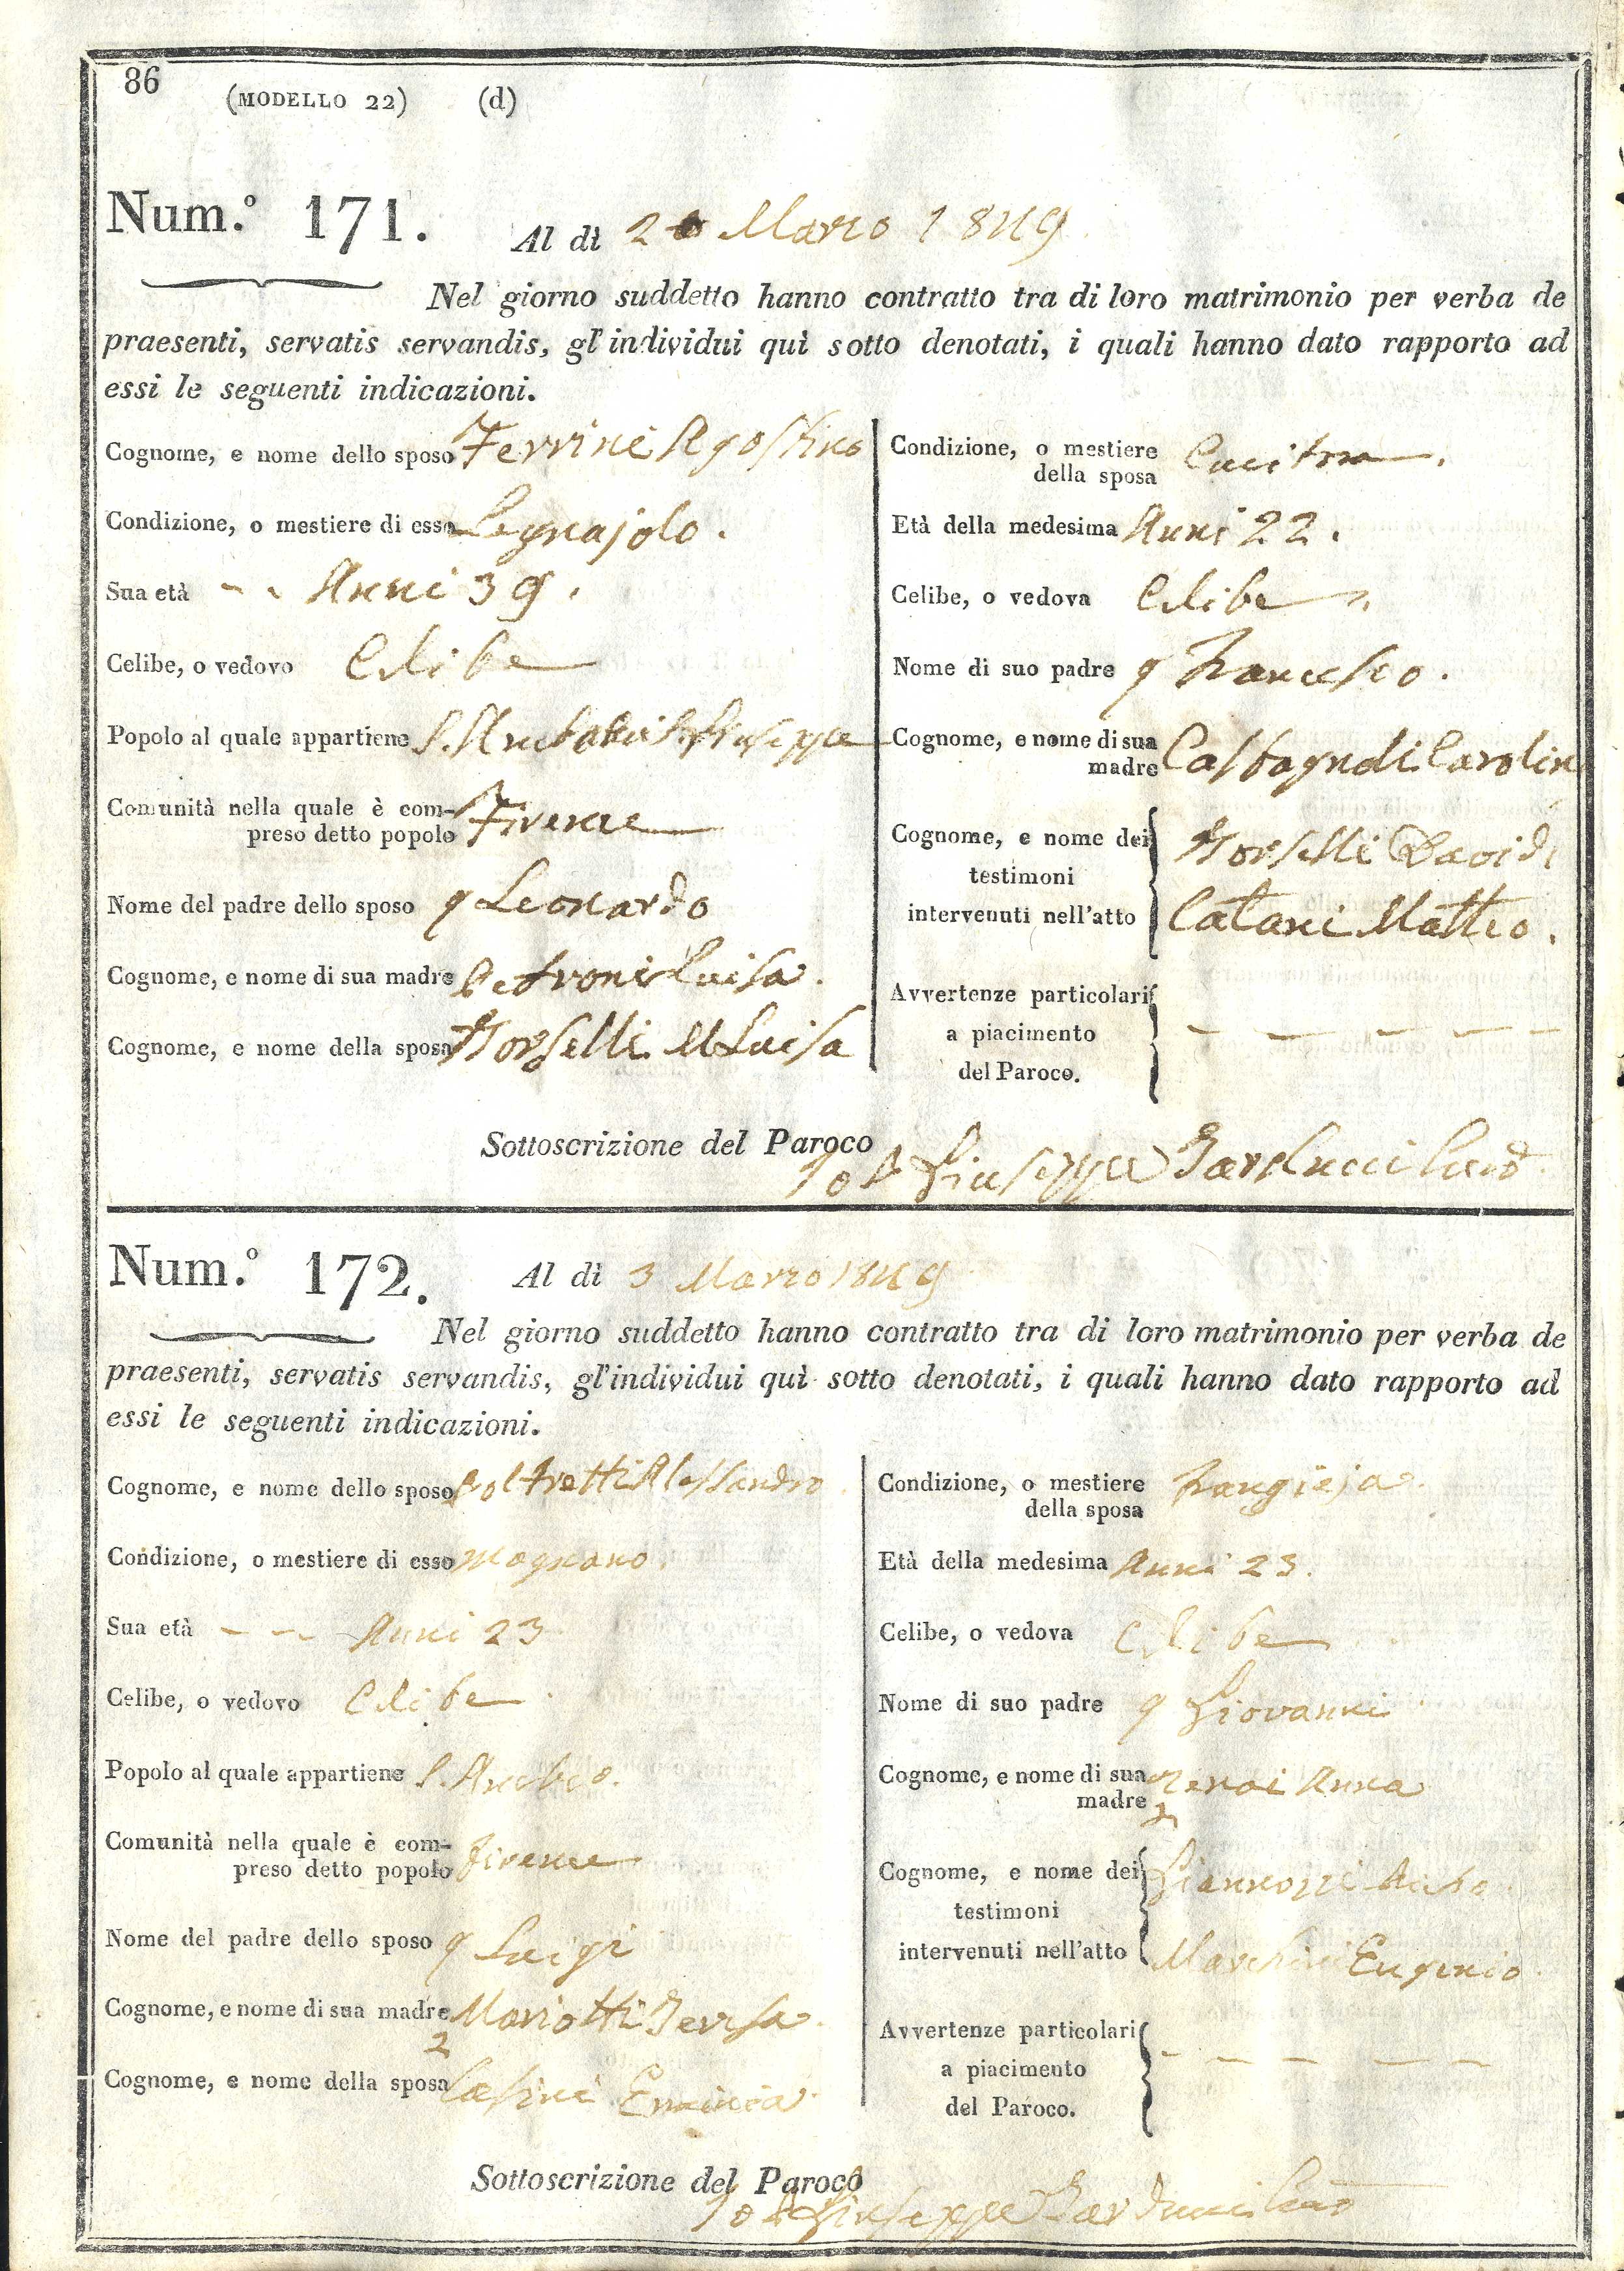 86
(MODELLO 22) (d)
Num.º 171.
Al dì 2 Marzo 1849
Nel giorno suddetto hanno contratto tra di loro matrimonio per verba de
praesenti, servatis servandis, gl'individui quì sotto denotati, i quali hanno dato rapporto ad
essi le seguenti indicazioni.
Cognome, e nome dello sposo Ferrini Agostino
Condizione, o mestiere di esso Legnajolo.
Sua età - - Anni 39.
Celibe, o vedovo Celibe
Popolo al quale appartiene S.
Comunità nella quale è com-
preso detto popolo Firenze
Nome del padre dello sposo q Leonardo
Cognome, e nome di sua madre Petroni Luisa.
Cognome, e nome della sposa Morselli M Luisa
Condizione, o mestiere
della sposa Cucitora.
Età della medesima Anni 22.
Celibe, o vedova Celibe
Nome di suo padre q Francesco.
Cognome, e nome di sua
madre Castagnoli Carolina
Cognome, e nome dei
testimoni
intervenuti nell'atto
Morselli David
Catani Matteo.
Avvertenze particolari
a piacimento
del Paroco.
- - - - -
Sottoscrizione del Paroco
Io P Giuseppe Carducci Curto
Num.º 172.
Al dì 3 Marzo 1849
Nel giorno suddetto hanno contratto tra di loro matrimonio per verba de
praesenti, servatis servandis, gl'individui quì sotto denotati, i quali hanno dato rapporto ad
essi le seguenti indicazioni.
Cognome, e nome dello sposo Poltretti Alessandro
Condizione, o mestiere di esso Magnano.
Sua età - - Anni 23
Celibe, o vedovo Celibe
Popolo al quale appartiene S.
Comunità nella quale è com-
preso detto popolo Firenze
Nome del padre dello sposo q Luigi
Cognome, e nome di sua madre Mariotti Teresa
2
Cognome, e nome della sposa Casini
Condizione, o mestiere
della sposa Frangieja
Età della medesima Anni 23.
Celibe, o vedova Celibe
Nome di suo padre q Giovanni
Cognome, e nome di sua
madre Anna
Cognome, e nome dei
testimoni
intervenuti nell'atto
Giannozzi
Eugenio
Avvertenze particolari
a piacimento
del Paroco.
- - - - -
Sottoscrizione del Paroco
Io P Giuseppe Carducci Curto